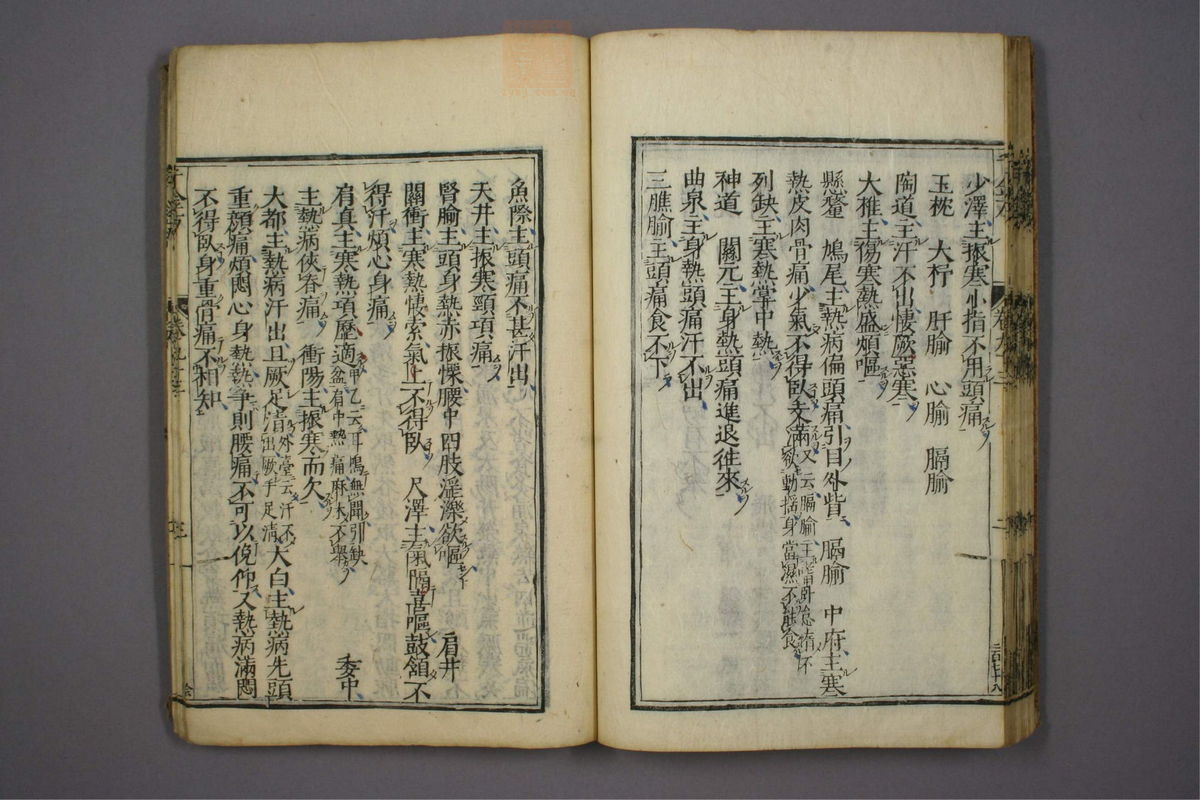 少澤主振寒小指不用頭痛
玉枕　大杼　肝腧　心腧　膈腧
陶道主汗不出悽厥惡寒
大椎主傷寒熱盛煩嘔
懸釐　鳩尾主熱病偏頭痛引目外眥　膈腧　中府主寒
熱皮肉骨痛少氣不得臥支滿
列缺主寒熱掌中熱
神道　關元主身熱頭痛進退往來
曲泉主身熱頭痛汗不出
三膲腧主頭痛食不下
魚際主頭痛不甚汗出
天井主振寒頸項痛
腎腧主頭身熱赤振慄腰中四肢淫濼欲嘔　肩井
關衝主寒熱悽索氣上不得臥　尺澤主氣膈喜嘔鼓頷不
得汗煩心身痛　委中
肩貞主寒熱項歷適甲乙云耳鳴無聞引缺盆肩中熱痛麻木不舉
主熱病俠脊痛　衝陽主振寒而欠
大都主熱病汗出且厥足清外臺云汗不出厥手足清大白主熱病先頭
重顏痛煩悶心身熱熱爭則腰痛不可以俛仰又熱病滿悶
不得臥身重骨痛不相知